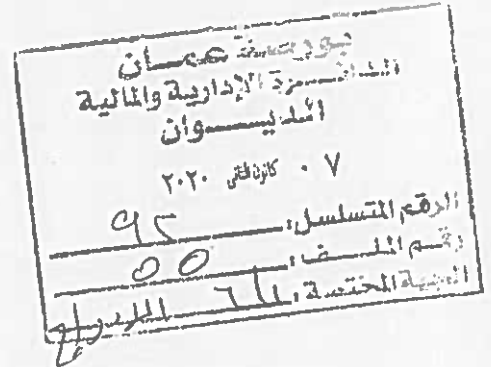 بورصة عمان
الدائرة الإدارية والمالية
الديوان
٠٧ كانون الثاني ٢٠٢٠
الرقم المتسلسل: ٩٢
رقم الملف: ٥٥
الجهة المختصة: